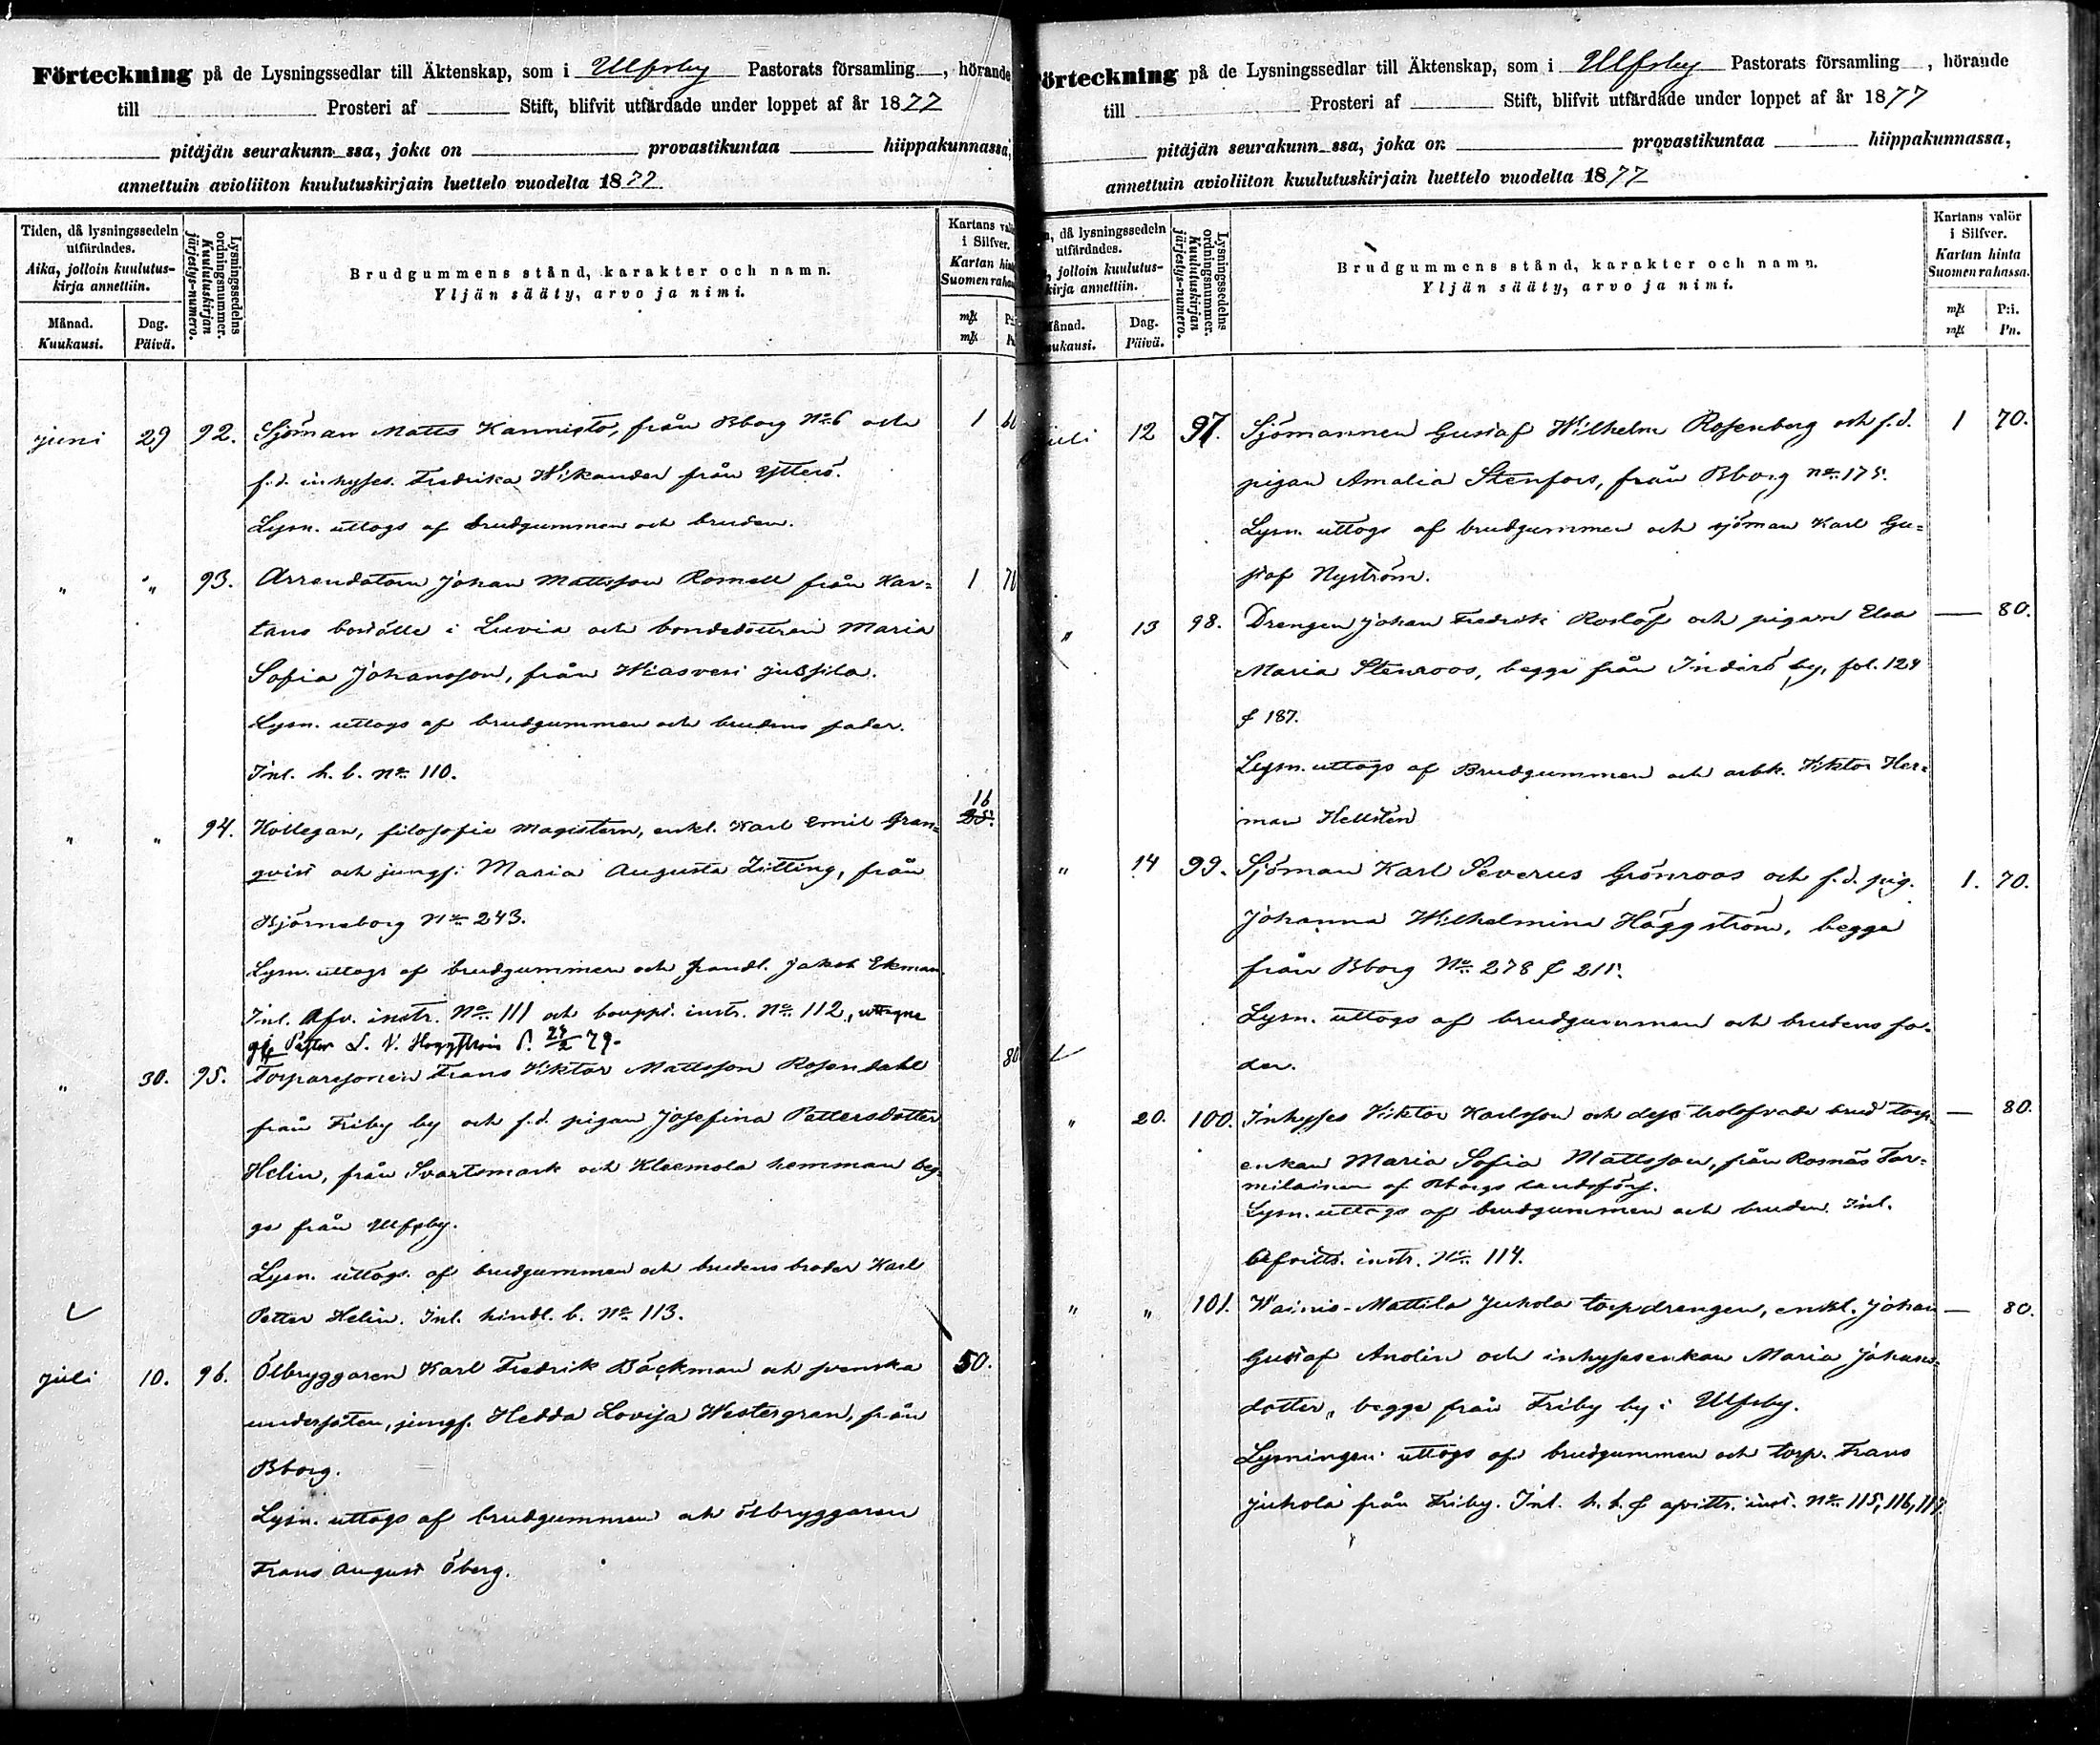 Förteckning på de Lysningssedlar till Äktenskap, som i Ulfsby Pastorats församling, hörande
till Prosteri af Stift, blifvit utfärdade under loppet af år 1877
pitäjän seurakunn ssa, joka on provastikuntaa hiippakunnassa,
annettuin avioliiton kuulutuskirjain luettelo vuodelta 1877
Tiden, då lysningssedeln utfärdades.
Aika, jolloin kuulutus-kirja annettiin.
Månad. Kuukausi.
Dag. Päivä.
Lysningssedelns ordningsnummer.
Kuulutuskirjan järjestys-numero.
Brudgummens stånd, karakter och namn.
Yljän sääty, arvo ja nimi.
Kartans
i Silfver.
Kartan
Suomen
mk
mk
juni 29 92. Sjöman Matts Kannisto, från Bborg No 6 och 1 60
f.d. inhyses. Fredrika Wikander från Ytterö.
Lysn. uttogs af brudgummen och bruden.
" " 93. Arrendatorn Johan Mattsson Romell från Kar= 1 70
tans boställe i Luvia och bondedottren Maria
Sofia Johansson, från Wiasvesi Jussila.
Lysn. uttogs af brudgummen och brudens fader.
Inl. h. b. No 110.
16
" " 94. Kollegan, filosofie Magistern, enkl. Karl Emil Gran= 25.
qvist och jungf. Maria Augusta Zitting, från
Björneborg No 243.
Lysn. uttogs af brudgummen och handl. Jakob Ekman.
Inl. Afv. instr. No 111 och bouppt. instr. No 112, uttagne
af Pastor L. V. Häggström d. 24/2 79.
" 30. 95. Torparesonen Frans Viktor Mattsson Rosendahl 80
från Friby by och f.d. pigan Josefina Pettersdotter
Helin, från Svartsmark och Kleemola hemman beg
ge från Ulfsby.
Lysn. uttogs af brudgummen och brudens broder Karl
Petter Helin. Inl. hindl. b. No 113.
juli 10. 96. Ölbryggaren Karl Fredrik Bäckman och svenska 50.
undersåten, jungf. Hedda Lovisa Westergran, från
Bborg.
Lysn. uttogs af brudgummen och ölbryggaren
Frans August Öberg.
Förteckning på de Lysningssedlar till Äktenskap, som i Ulfsby Pastorats församling, hörande
till Prosteri af Stift, blifvit utfärdade under loppet af år 1877
pitäjän seurakunn ssa, joka on provastikuntaa hiippakunnassa,
annettuin avioliiton kuulutuskirjain luettelo vuodelta 1877
då lysningssedeln utfärdades.
jolloin kuulutus-kirja annettiin.
Månad.
Dag. Päivä.
Lysningssedelns ordningsnummer.
Kuulutuskirjan järjestys-numero.
Brudgummens stånd, karakter och namn.
Yljän sääty, arvo ja nimi.
Kartans valör
i Silfver.
Kartan hinta
Suomen rahassa.
mk P:i.
mk Pn.
juli 12 97. Sjömannen Gustaf Wilhelm Rosenberg och f.d. 1 70.
pigan Amalia Stenfors, från Bborg No 175.
Lysn. uttogs af brudgummen och sjöman Karl Gu=
staf Nyström.
" 13 98. Drengen Johan Fredrik Roslöf och pigan Elsa — 80.
Maria Stenroos, begge från Inderö by, fol. 124
& 187.
Lysn. uttogs af Brudgummen och arbk. Viktor Her=
man Hellsten
" 14 99. Sjöman Karl Severus Grönroos och f.d. pig. 1. 70.
Johanna Wilhelmina Häggström, begge
från Bborg No 278 & 211.
Lysn. uttogs af brudgummen och brudens fa-
der.
" 20. 100. Inhyses Viktor Karlsson och dess trolofvade brud torp= — 80.
enkan Maria Sofia Mattsson, från Rosnäs Tor=
milainen af Bborgs landsförs.
Lysn. uttogs af brudgummen och bruden. Inl.
Afvittr. instr. No 114.
" " 101. Wainio-Mattila Juhola torpdrengen, enkl. Johan — 80.
Gustaf Anolin och inhysesenkan Maria Johans=
dotter, begge från Friby by i Ulfsby.
Lysningen uttogs af brudgummen och torp. Frans
Juhola från Friby. Inl. h. b. & afvittr. inst. No 115, 116, 117.